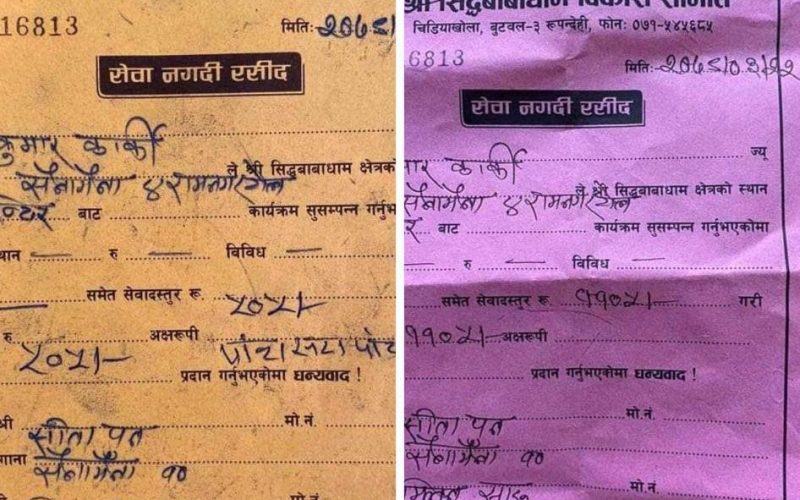 16813 मितिः २०७८।
सेवा नगदी रसीद
कुमार कार्की
सैनामैना ४ रामनगर ले श्री सिद्धबाबाधाम क्षेत्रको
बाट कार्यक्रम सुसम्पन्न गर्नुभ
थान — रु — विविध —
समेत सेवादस्तुर रू. ५०५।-
रु ५०५।- अक्षरूपी पाँच सय पाँच
प्रदान गर्नुभएकोमा धन्यवाद !
श्री सीता पन्त मो.नं.
गाना सैनामैना १०
श्री सिद्धबाबाधाम विकास समिति
चिडियाखोला, बुटवल-३ रूपन्देही, फोनः ०७१-५४५६८५
6813
मितिः
सेवा नगदी रसीद
मार कार्की ज्यू
सैनामैना ४ रामनगर ले श्री सिद्धबाबाधाम क्षेत्रको स्थान
बाट कार्यक्रम सुसम्पन्न गर्नुभएकोमा
— रु — विविध —
समेत सेवादस्तुर रू. ११०५।- गरी
११०५।- अक्षरूपी
प्रदान गर्नुभएकोमा धन्यवाद !
सीता पन्त मो.नं.
सैनामैना १०